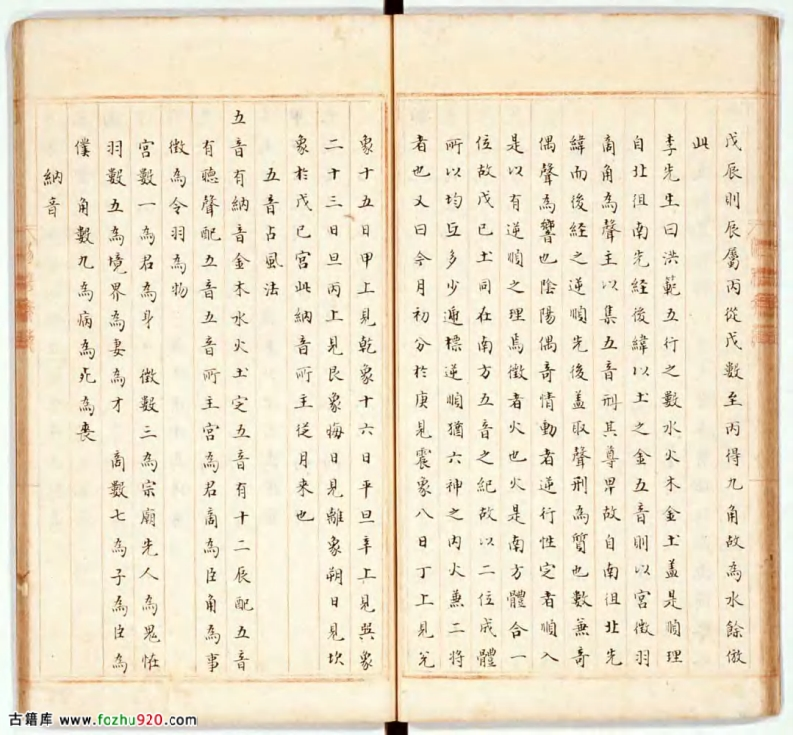 戊辰則辰屬丙從戊數至丙得九角故為水餘倣
此
李先生曰洪範五行之數水火木金土蓋是順理
自北徂南先経後緯以土之金五音則以宮徵羽
商角為聲主以集五音刑其尊畀故自南徂北先
緯而後経之逆順先後蓋取聲刑為質也數兼奇
偶聲為響也陰陽偶奇情動者逆行性定者順入
是以有逆順之理焉徵者火也火是南方體合一
位故戊已土同在南方五音之紀故以二位成體
所以均五多少遁標逆順猶六神之内火兼二將
者也又曰今月初分於庚見震象八日丁上見兊
象十五日甲上見乾象十六日平旦辛上見巽象
二十三日旦丙上見艮象晦日見離象朔日見坎
象於戊已宮此納音所主從月来也
五音占風法
五音有納音金木水火土定五音有十二辰配五音
有聽聲配五音五音所主宮為君商為臣角為事
徵為令羽為物
宮數一為君為身 徵數三為宗廟先人為鬼恠
羽數五為境界為妻為才 商數七為子為臣為
僕 角數九為病為死為喪
納音
古籍库 www.fozhu920.com